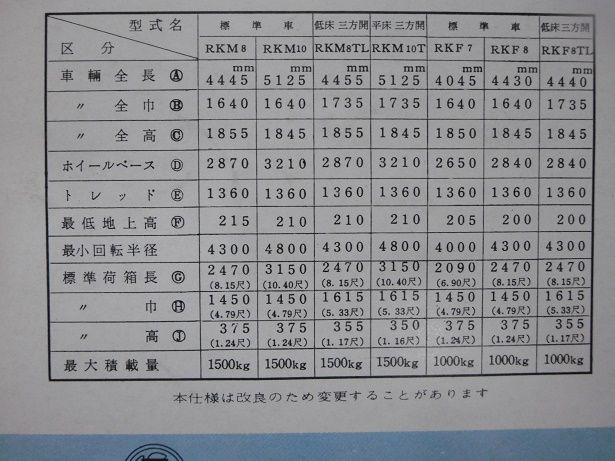 型式名 標準車 低床三方開 平床三方開 標準車 低床三方開
区分 RKM8 RKM10 RKM8TL RKM10T RKF7 RKF8 RKF8TL
車輛全長Ⓐ mm 4445 mm 5125 mm 4455 mm 5125 mm 4045 mm 4430 mm 4440
〃 全巾Ⓑ 1640 1640 1735 1735 1640 1640 1735
〃 全高Ⓒ 1855 1845 1855 1845 1850 1845 1845
ホイールベースⒹ 2870 3210 2870 3210 2650 2840 2840
トレッドⒺ 1360 1360 1360 1360 1360 1360 1360
最低地上高Ⓕ 215 210 210 210 205 200 200
最小回転半径 4300 4800 4300 4800 4000 4300 4300
標準荷箱長Ⓖ 2470 3150 2470 3150 2090 2470 2470
(8.15尺) (10.40尺) (8.15尺) (10.40尺) (6.90尺) (8.15尺) (8.15尺)
〃 巾Ⓗ 1450 1450 1615 1615 1450 1450 1615
(4.79尺) (4.79尺) (5.33尺) (5.33尺) (4.79尺) (4.79尺) (5.33尺)
〃 高Ⓙ 375 375 355 350 375 375 355
(1.24尺) (1.24尺) (1.17尺) (1.16尺) (1.24尺) (1.24尺) (1.17尺)
最大積載量 1500kg 1500kg 1500kg 1500kg 1000kg 1000kg 1000kg
本仕様は改良のため変更することがあります